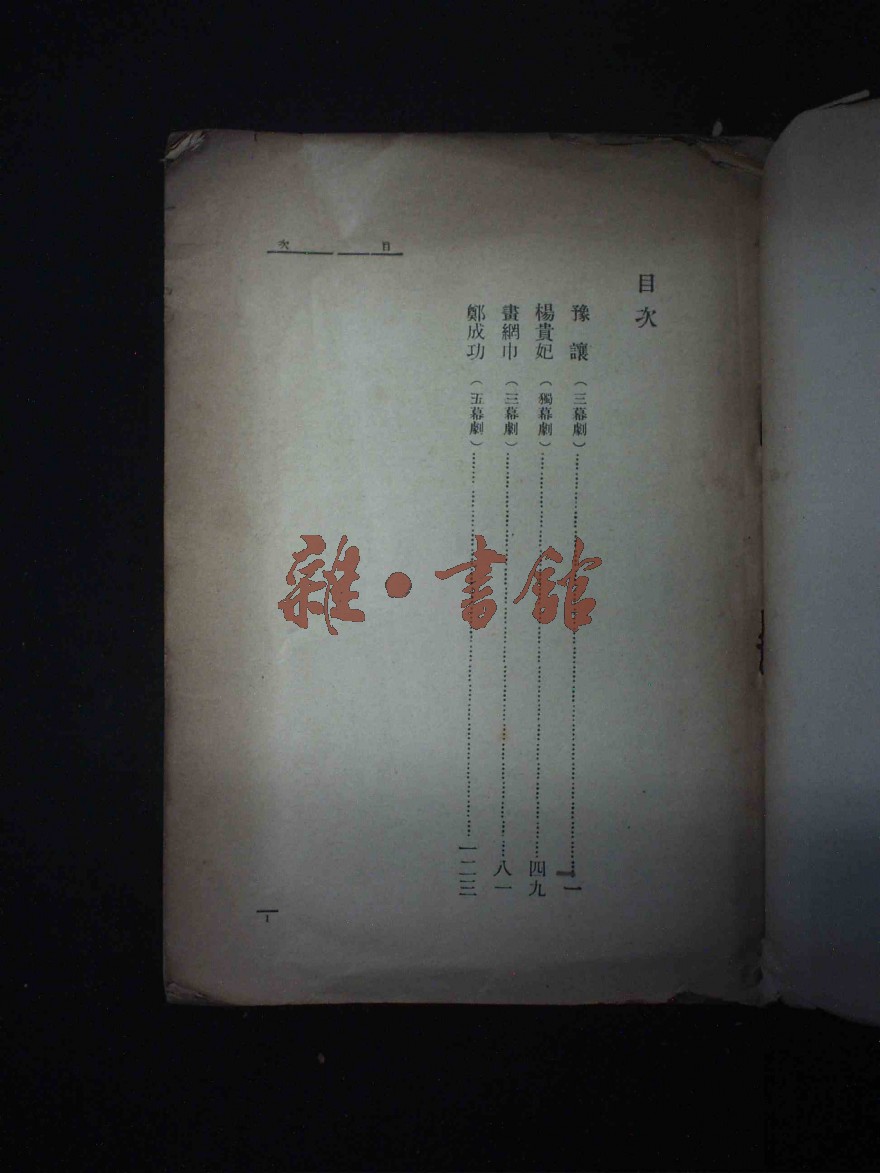 目次
目次
豫讓（三幕劇）……一
楊貴妃（獨幕劇）……四九
畫網巾（三幕劇）……八一
鄭成功（五幕劇）……一二三
1
雜·書館